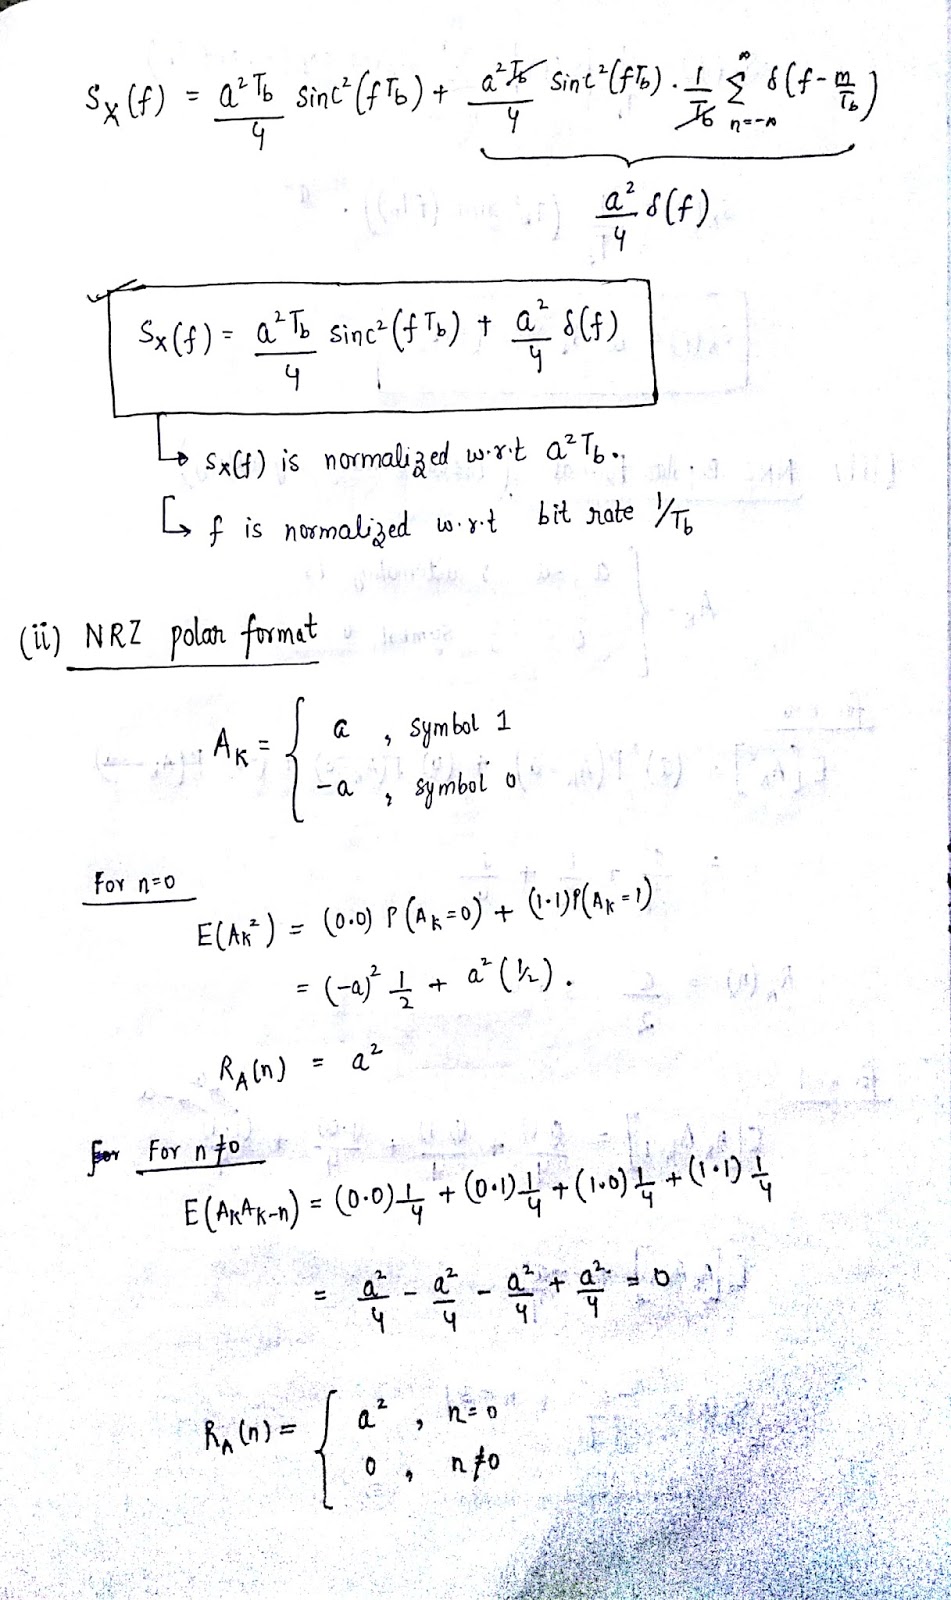 Sx(f) = a²Tb/4 sinc²(fTb) + a²Tb/4 sinc²(fTb) · 1/Tb Σ_{n=-∞}^{∞} δ(f - m/Tb)
a²/4 δ(f)
Sx(f) = a²Tb/4 sinc²(fTb) + a²/4 δ(f)
↳ Sx(f) is normalized w.r.t a²Tb.
↳ f is normalized w.r.t bit rate 1/Tb
(ii) NRZ polar format
AK = { a , symbol 1
-a , symbol 0
For n=0
E(AK²) = (0·0) P(AK=0) + (1·1)P(AK=1)
= (-a)² 1/2 + a² (1/2).
RA(n) = a²
For For n≠0
E(AKAK-n) = (0·0)1/4 + (0·1)1/4 + (1·0)1/4 + (1·1)1/4
= a²/4 - a²/4 - a²/4 + a²/4 = 0
RA(n) = { a² , n=0
0 , n≠0